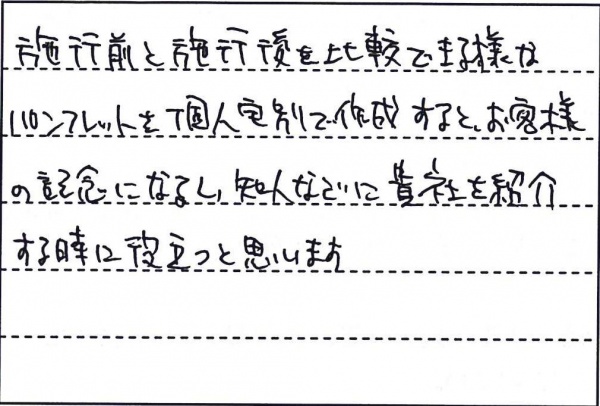 施行前と施行後を比較できる様な
パンフレットを個人宅別で作成すると、お客様
の記念になるし、知人などに貴社を紹介
する時に役立つと思います